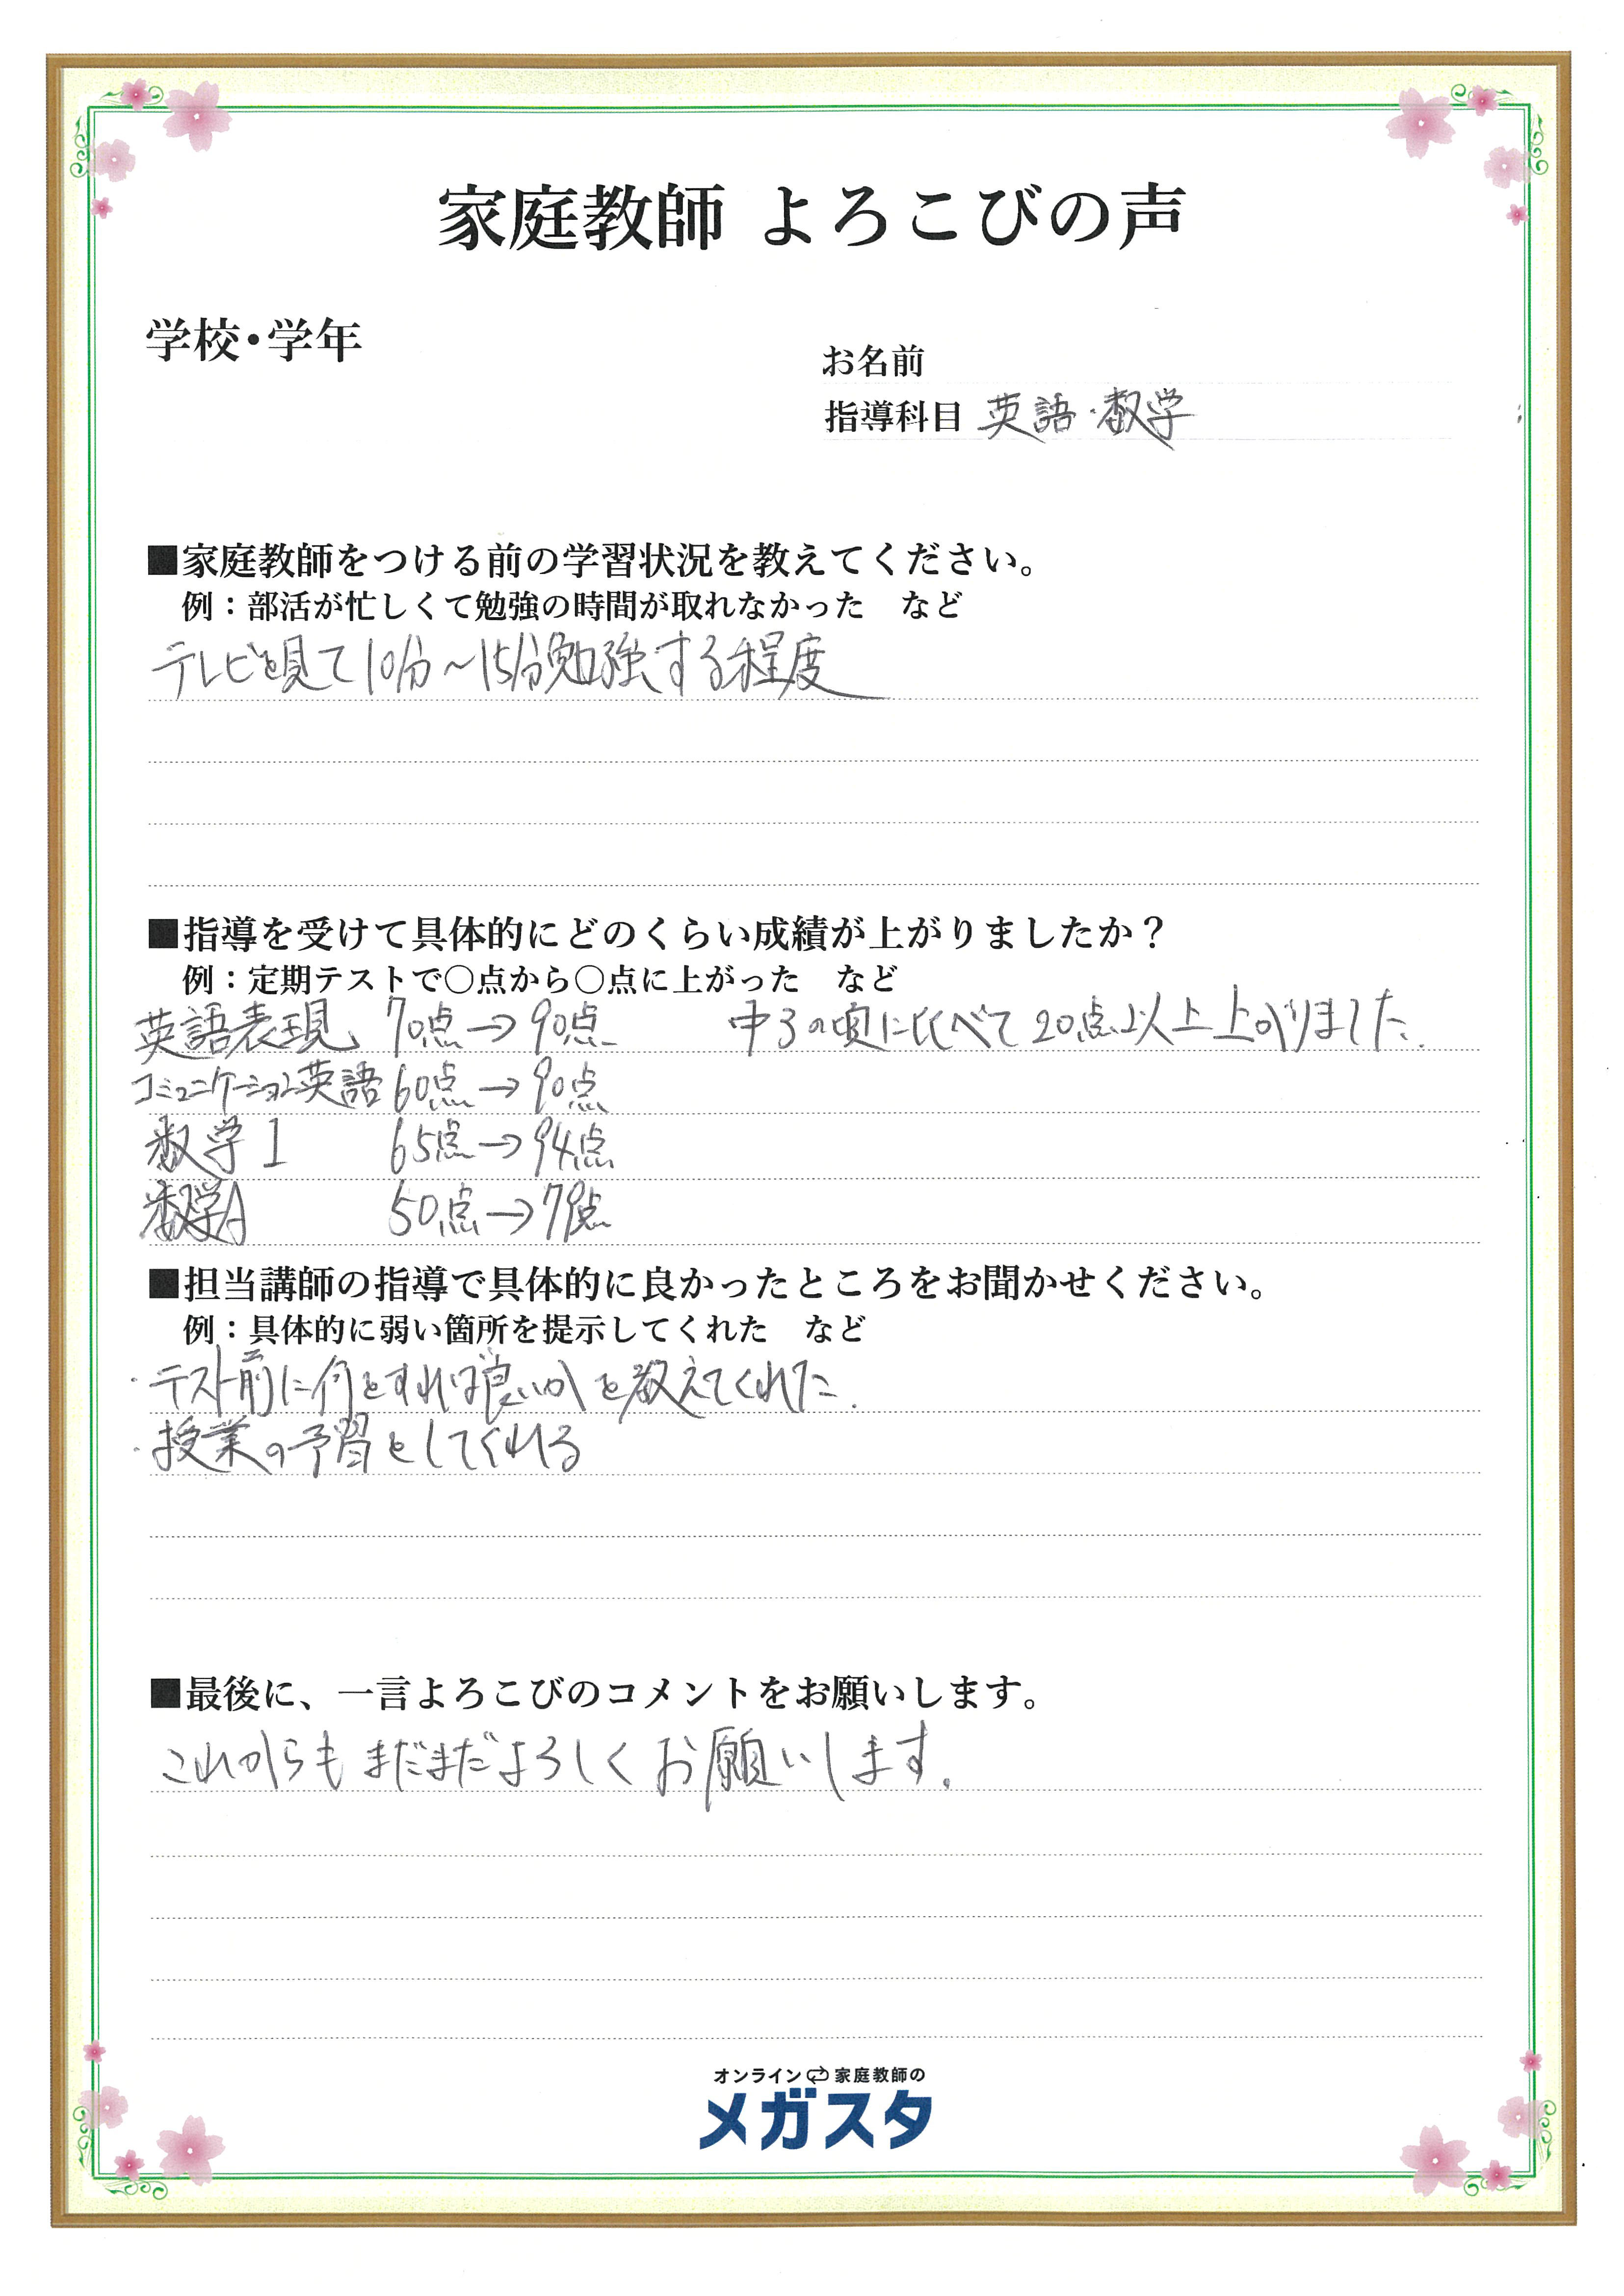 家庭教師 よろこびの声
学校・学年
お名前
指導科目 英語・数学
■家庭教師をつける前の学習状況を教えてください。
例：部活が忙しくて勉強の時間が取れなかった　など
テレビを見て10分～15分勉強する程度
■指導を受けて具体的にどのくらい成績が上がりましたか？
例：定期テストで○点から○点に上がった　など
英語表現 70点→90点　中3の頃に比べて20点以上上がりました。
コミュニケーション英語 60点→90点
数学I 65点→94点
数学A 50点→79点
■担当講師の指導で具体的に良かったところをお聞かせください。
例：具体的に弱い箇所を提示してくれた　など
・テスト前に何をすれば良いかを教えてくれた。
・授業の予習をしてくれる
■最後に、一言よろこびのコメントをお願いします。
これからもまだまだよろしくお願いします。
オンライン家庭教師の
メガスタ